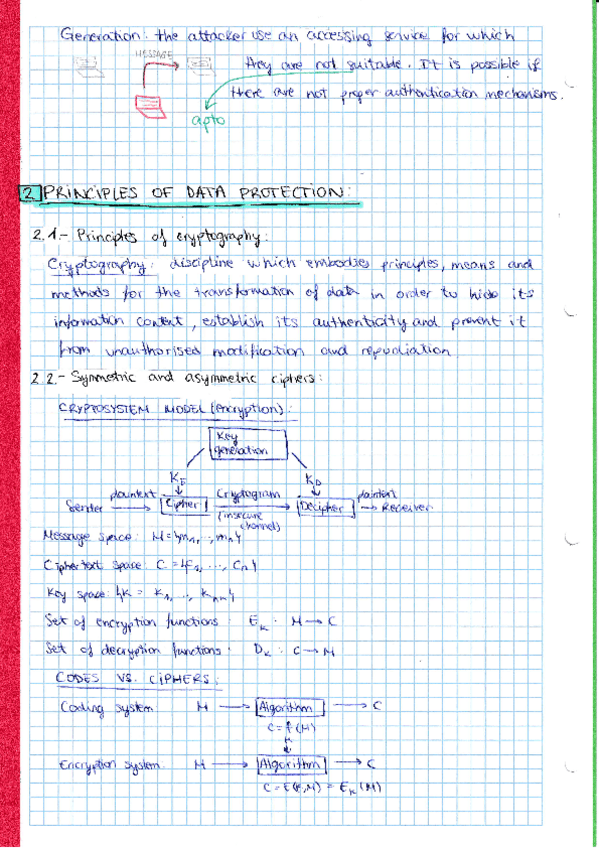 Generation: the attacker use an accessing service for which
MESSAGE
they are not suitable. It is possible if
there are not proper authentication mechanisms.
apto
2 PRINCIPLES OF DATA PROTECTION:
2.1.- Principles of cryptography:
Cryptography: discipline which embodies principles, means and
methods for the transformation of data in order to hide its
information content, establish its authenticity and prevent it
from unauthorised modification and repudiation
2.2.- Symmetric and asymmetric ciphers:
CRYPTOSYSTEM MODEL (encryption):
Key
generation
K_E K_D
Sender plaintext Cipher Cryptogram Decipher plaintext Receiver
(insecure
channel)
Message space: M={m₁, ..., mₙ}
Ciphertext space: C={c₁, ..., cₙ}
Key space: {K = K₁, ..., Kₙ}
Set of encryption functions: E_K: M → C
Set of decryption functions: D_K: C → M
CODES VS. CIPHERS:
Coding system: M → Algorithm → C
C=f(M)
K
Encryption system: M → Algorithm → C
C=E(K,M) = E_K(M)